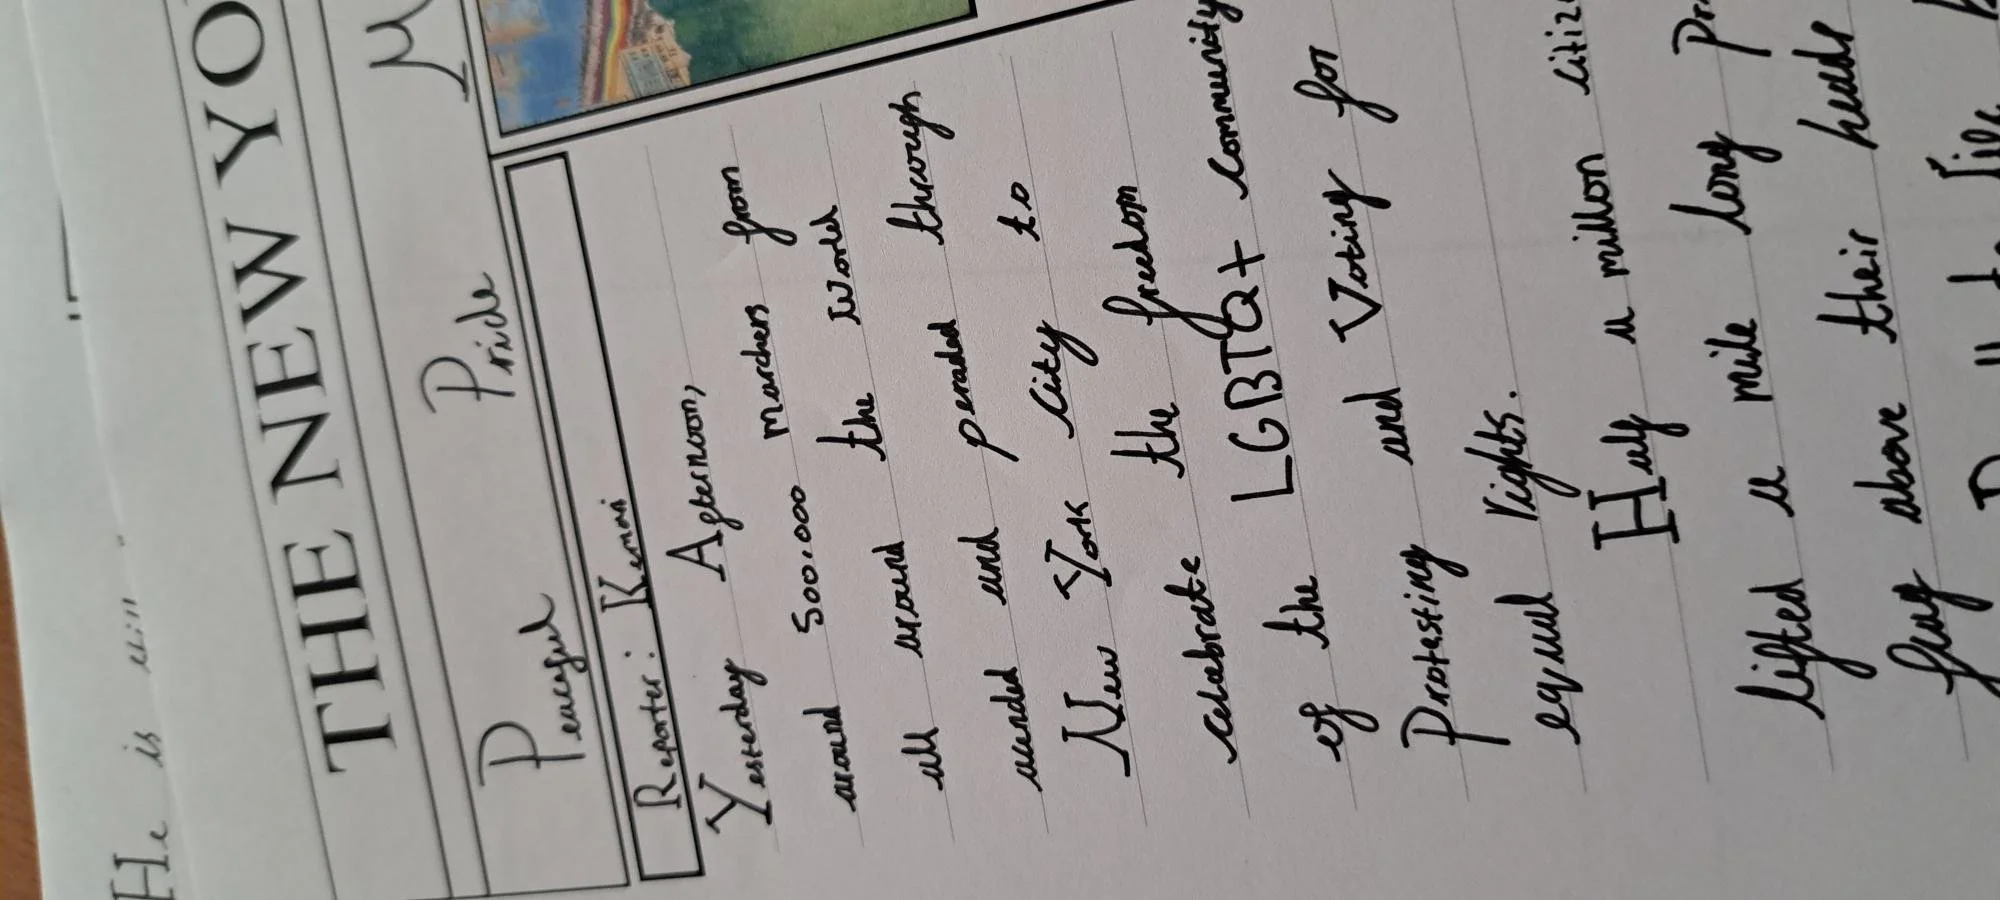 He is
THE NEW YO
Peaceful Pride M
Reporter: Kemai
Yesterday Afternoon,
around 500,000 marchers from
all around the world
uended and peraded through
New York City to
celabrate the freedom
of the LGBTQ+ community
Protesting and Voting for
equal rights.
Half a million citiz
lifted a mile long Pr
flag above their heads